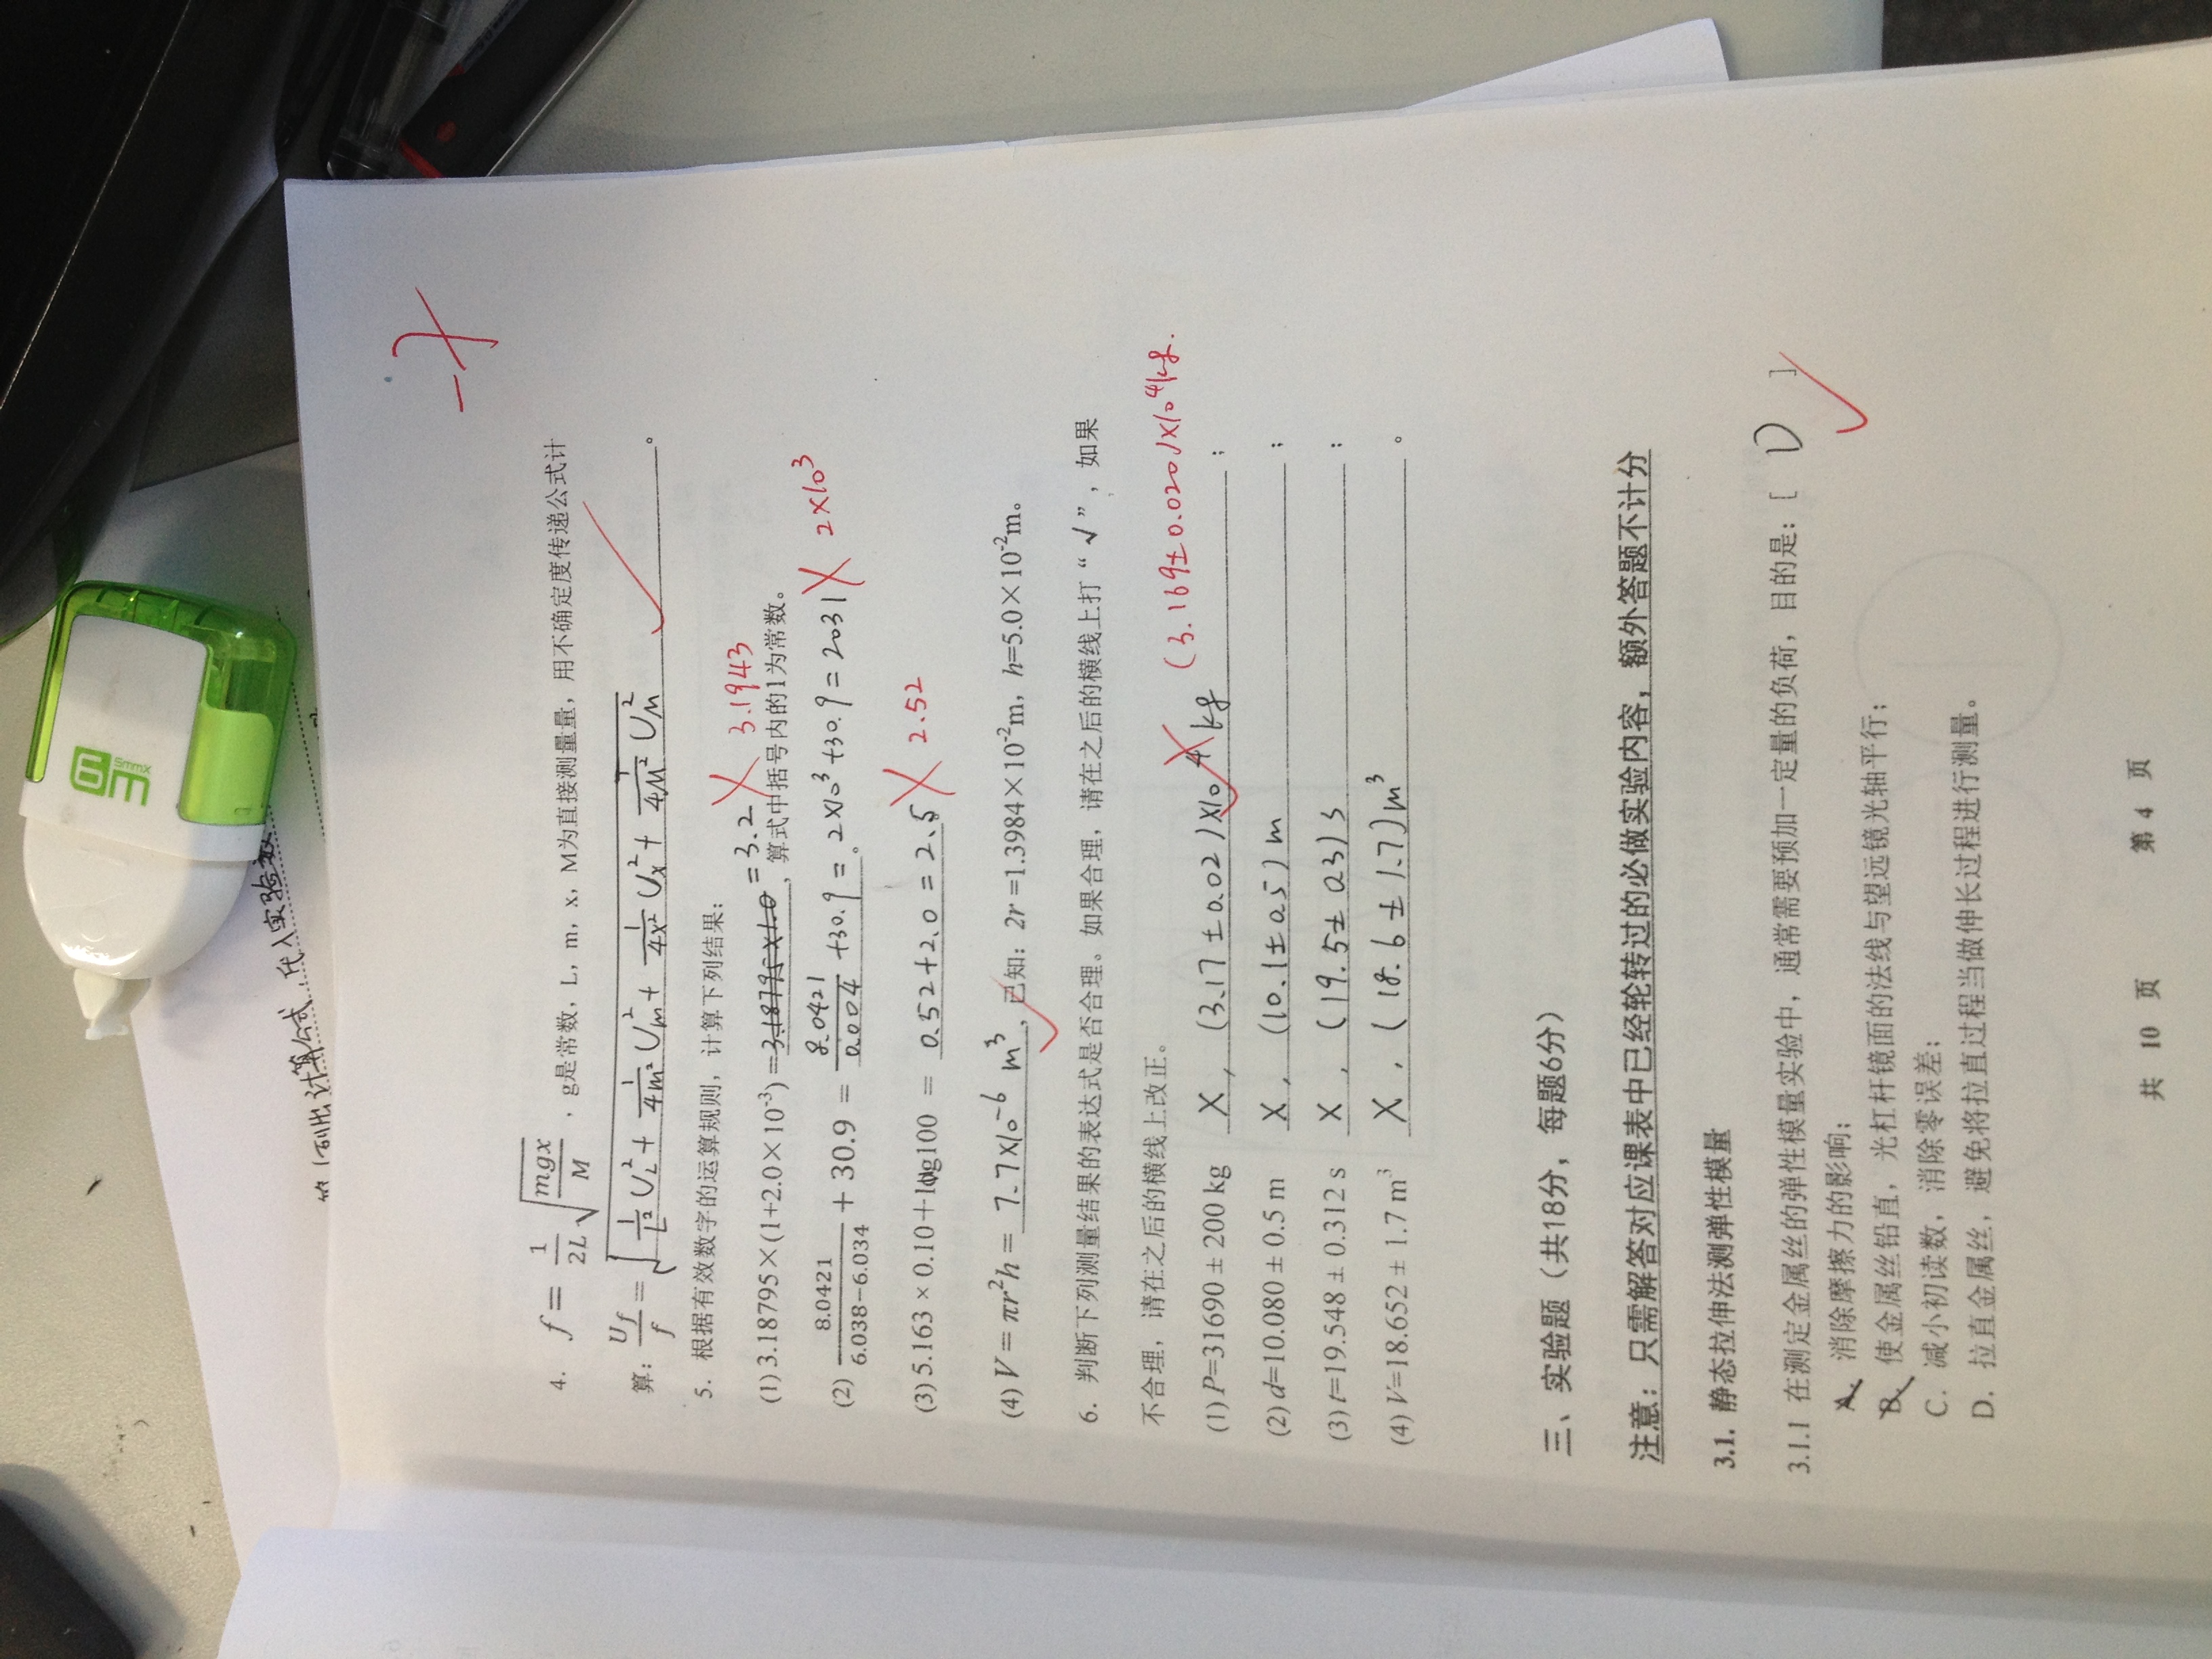 6m
5mmx
列出计算公式，代入实验数
-7
4. f= 1/2L √(mgx/M) ，g是常数，L，m，x，M为直接测量量，用不确定度传递公式计
算：U_f/f = √(1/L² U_L² + 1/4m² U_m² + 1/4x² U_x² + 1/4M² U_M²) ✓ 。
5. 根据有效数字的运算规则，计算下列结果：
(1) 3.18795×(1+2.0×10⁻³) = 3.18795×1.0 = 3.2 X 3.1943 ，算式中括号内的1为常数。
(2) 8.0421/(6.038−6.034) + 30.9 = 8.0421/0.004 +30.9 = 2×10³+30.9 = 2031 X 2×10³ 。
(3) 5.163 × 0.10+log100 = 0.52+2.0 = 2.5 X 2.52
(4) V = πr²h = 7.7×10⁻⁶ m³ ✓ ，已知：2r =1.3984×10⁻²m，h=5.0×10⁻²m。
6. 判断下列测量结果的表达式是否合理。如果合理，请在之后的横线上打“√”，如果
不合理，请在之后的横线上改正。
(1) P=31690 ± 200 kg X, (3.17±0.02)×10⁴ kg X (3.169±0.020)×10⁴kg. ；
(2) d=10.080 ± 0.5 m X, (10.1±0.5) m ；
(3) t=19.548 ± 0.312 s X, (19.5±0.3) s ；
(4) V=18.652 ± 1.7 m³ X, (18.6±1.7) m³ 。
三、实验题（共18分，每题6分）
注意：只需解答对应课表中已经轮转过的必做实验内容，额外答题不计分
3.1. 静态拉伸法测弹性模量
3.1.1 在测定金属丝的弹性模量实验中，通常需要预加一定量的负荷，目的是：[ D ] ✓
A. 消除摩擦力的影响；
B. 使金属丝铅直，光杠杆镜面的法线与望远镜光轴平行；
C. 减小初读数，消除零误差；
D. 拉直金属丝，避免将拉直过程当做伸长过程进行测量。
共 10 页 第 4 页